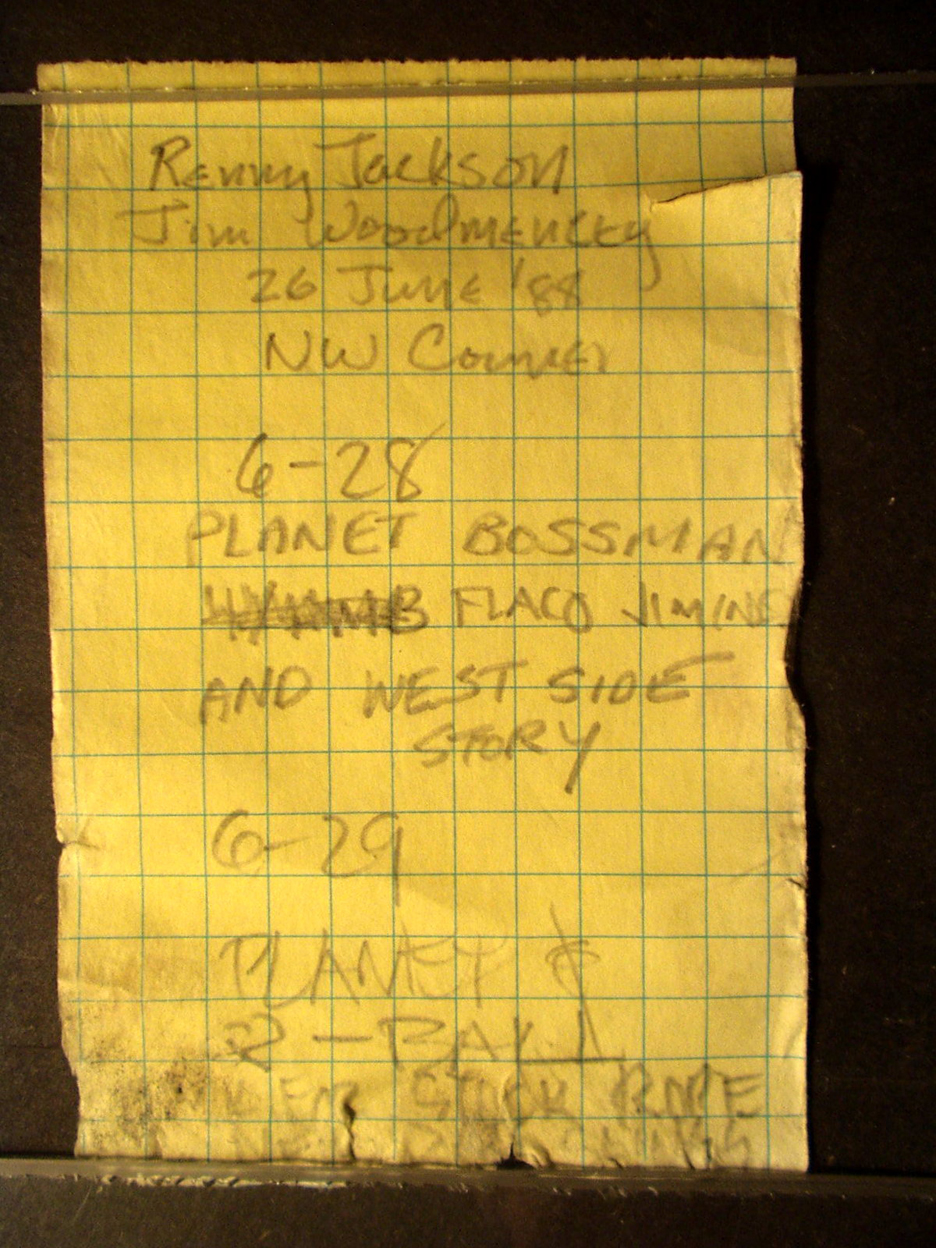 Renny Jackson
Jim Woodmencey
26 June '88
NW Corner
6-28
PLANET BOSSMAN
FLACO JIMINE
AND WEST SIDE
STORY
6-29
PLANET &
2-BALL
ROPE